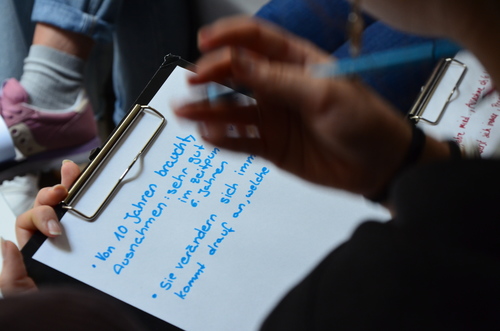 • Von 10 Jahren braucht,
Ausnahmen: sehr gut
im Zeitpun
6. Jahren
• Sie verändern sich imm
kommt drauf an, welche